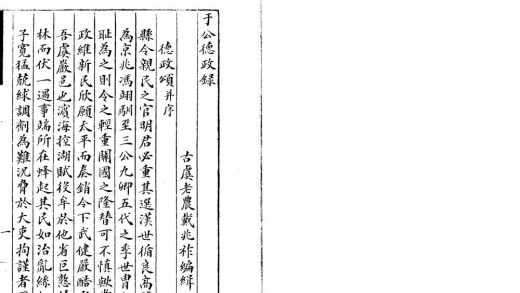 于公德政録
古虞老農戴兆祚編緝
德政頌并序
縣令親民之官明君必重其選漢世循良高
為京兆馮翊馴至三公九卿五代之季世冑
耻為之則今之輕重關國之隆替可不慎歟
政維新民欣願太平而奏銷令下武健嚴酷
吾虞嚴邑也濱海控湖賦役牟於他省巨憝
林而伏一遇事端所在蜂起其民如治亂絲
子寬猛競絿調劑為難況脅於大吏拘謹者
一